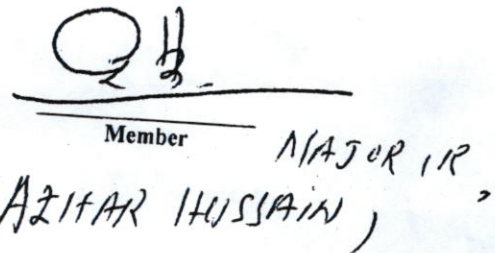 Member
MAJOR (R)
AZHAR HUSSAIN,